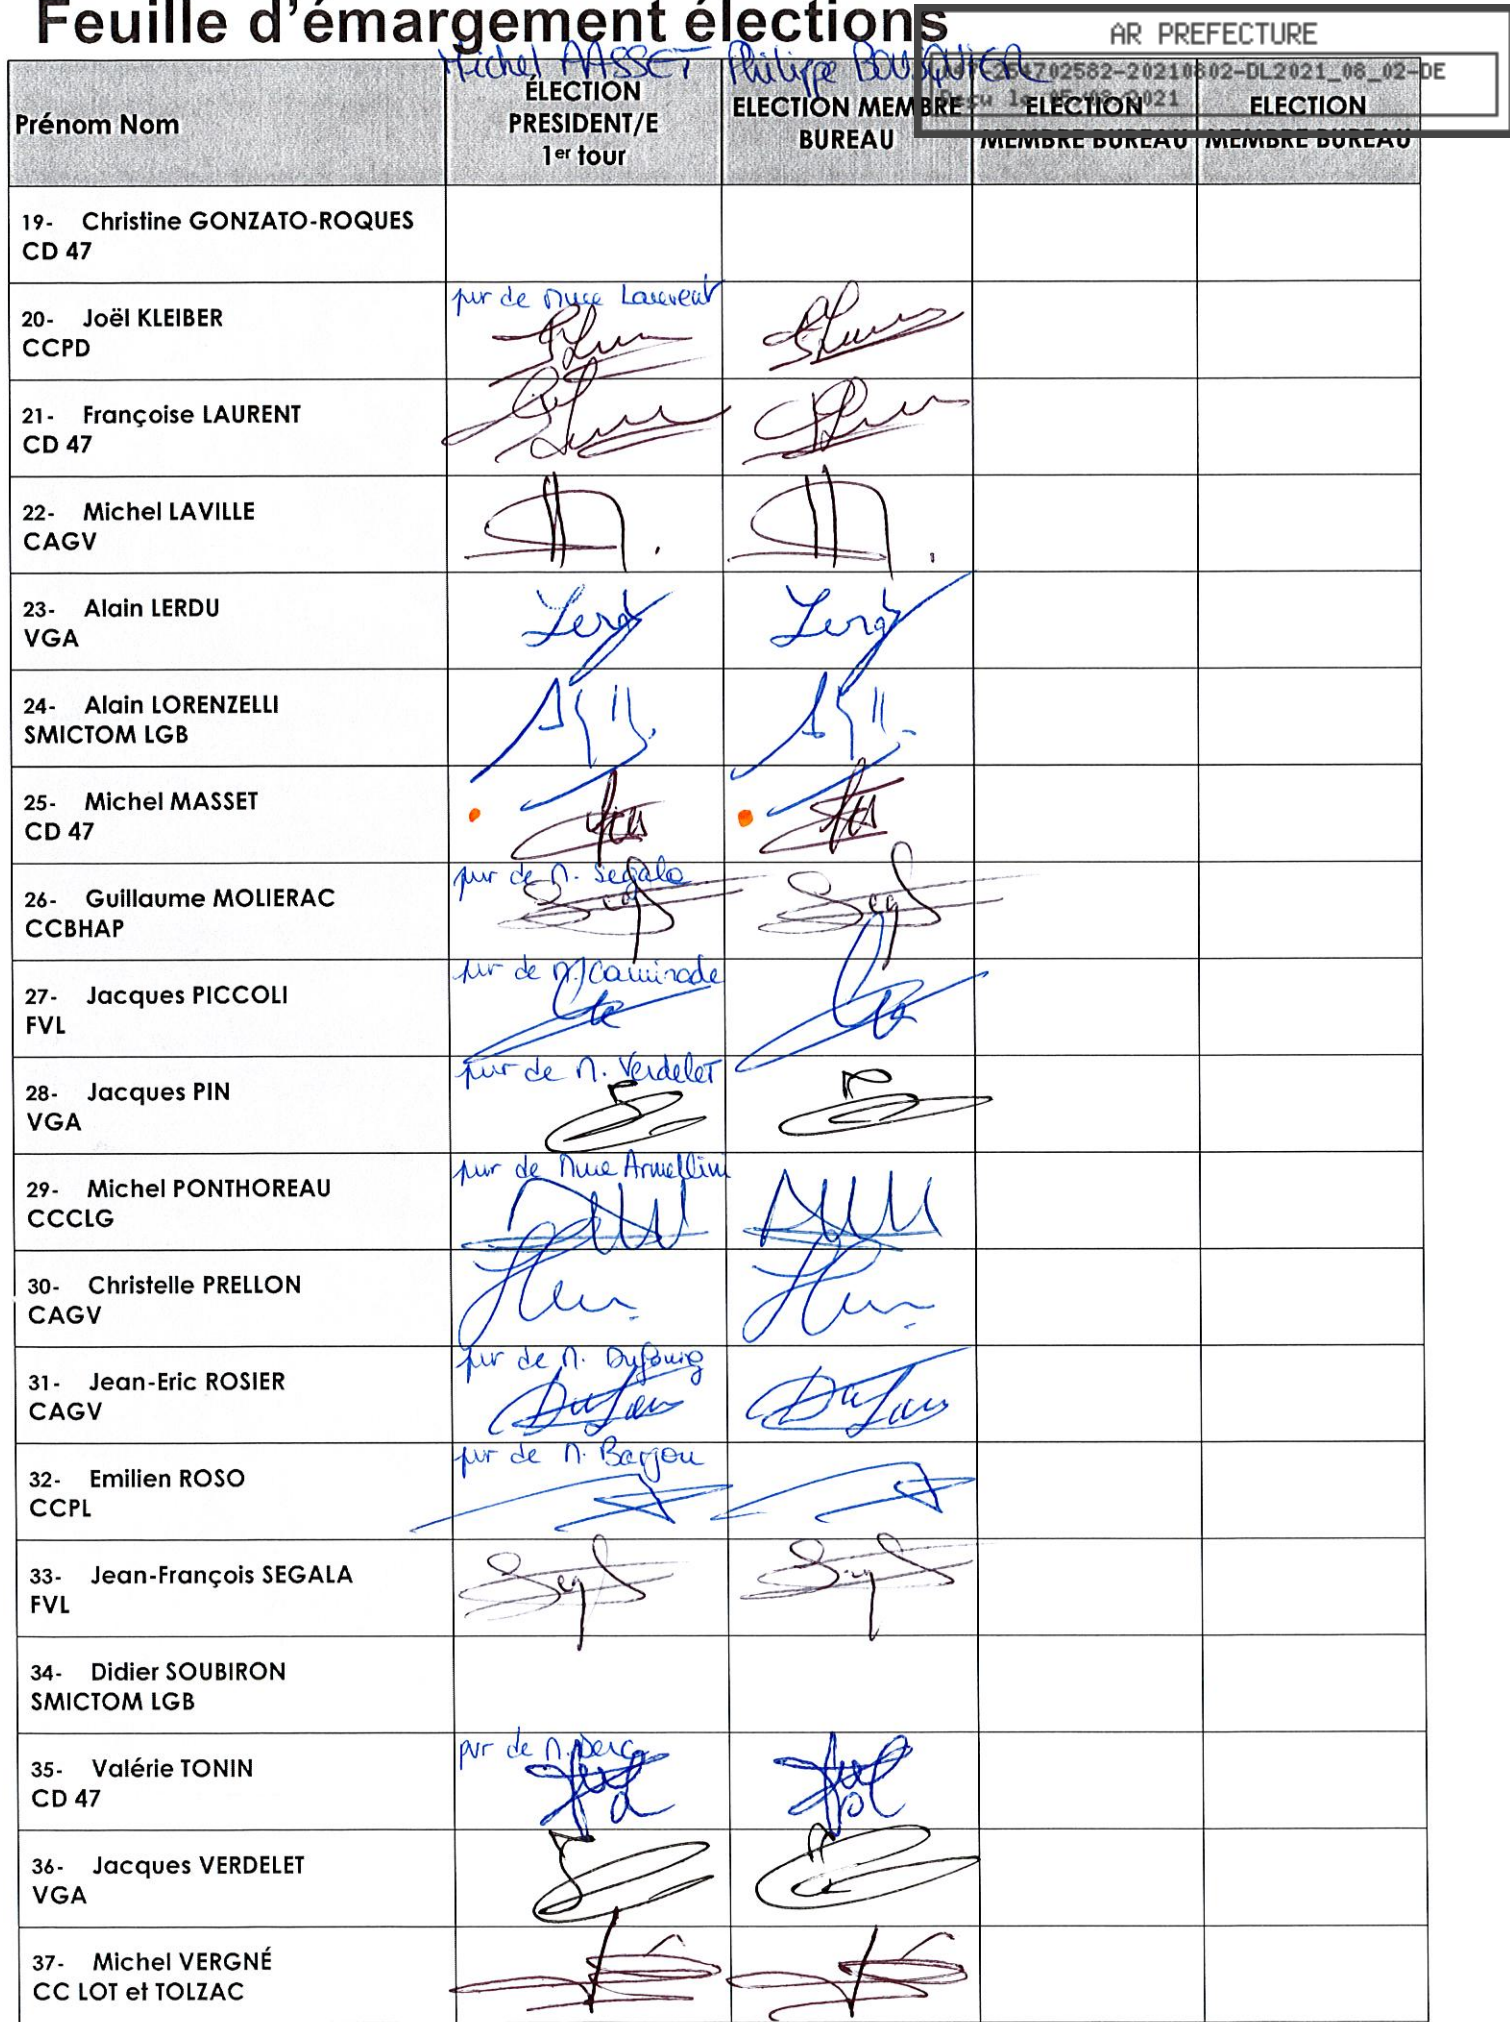 Feuille d'émargement élections
AR PREFECTURE
047-254702582-20210802-DL2021_08_02-DE
Reçu le 05-08-2021
Michel MASSET Philippe BOUSQUIER
Prénom Nom
ÉLECTION
PRESIDENT/E
1er tour
ELECTION MEMBRE
BUREAU
ELECTION
MEMBRE BUREAU
ELECTION
MEMBRE BUREAU
19- Christine GONZATO-ROQUES
CD 47
20- Joël KLEIBER
CCPD
pvr de Mme Laurent
21- Françoise LAURENT
CD 47
22- Michel LAVILLE
CAGV
23- Alain LERDU
VGA
24- Alain LORENZELLI
SMICTOM LGB
25- Michel MASSET
CD 47
26- Guillaume MOLIERAC
CCBHAP
pvr de M. Segala
27- Jacques PICCOLI
FVL
pvr de M. Caminade
28- Jacques PIN
VGA
pvr de M. Verdelet
29- Michel PONTHOREAU
CCCLG
pvr de Mme Armellini
30- Christelle PRELLON
CAGV
31- Jean-Eric ROSIER
CAGV
pvr de M. Dufourg
32- Emilien ROSO
CCPL
pvr de M. Barjou
33- Jean-François SEGALA
FVL
34- Didier SOUBIRON
SMICTOM LGB
35- Valérie TONIN
CD 47
pvr de M.
36- Jacques VERDELET
VGA
37- Michel VERGNÉ
CC LOT et TOLZAC